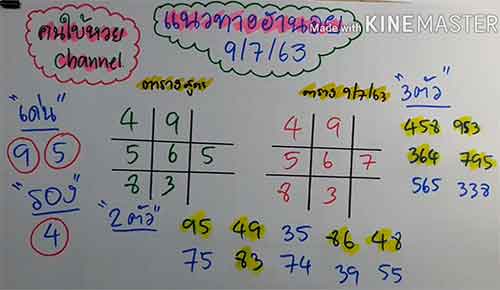 คนใบ้หวย
Channel
แนวทางฮานอย
9/7/63
Made with KINEMASTER
"เด่น"
9 5
"รอง"
4
ตารางสูตร
4 9
5 6 5
8 3
ตาราง 9/7/63
4 9
5 6 7
8 3
"3ตัว"
458 953
364 795
565 338
"2ตัว"
95 49 35 86 48
75 83 74 39 55